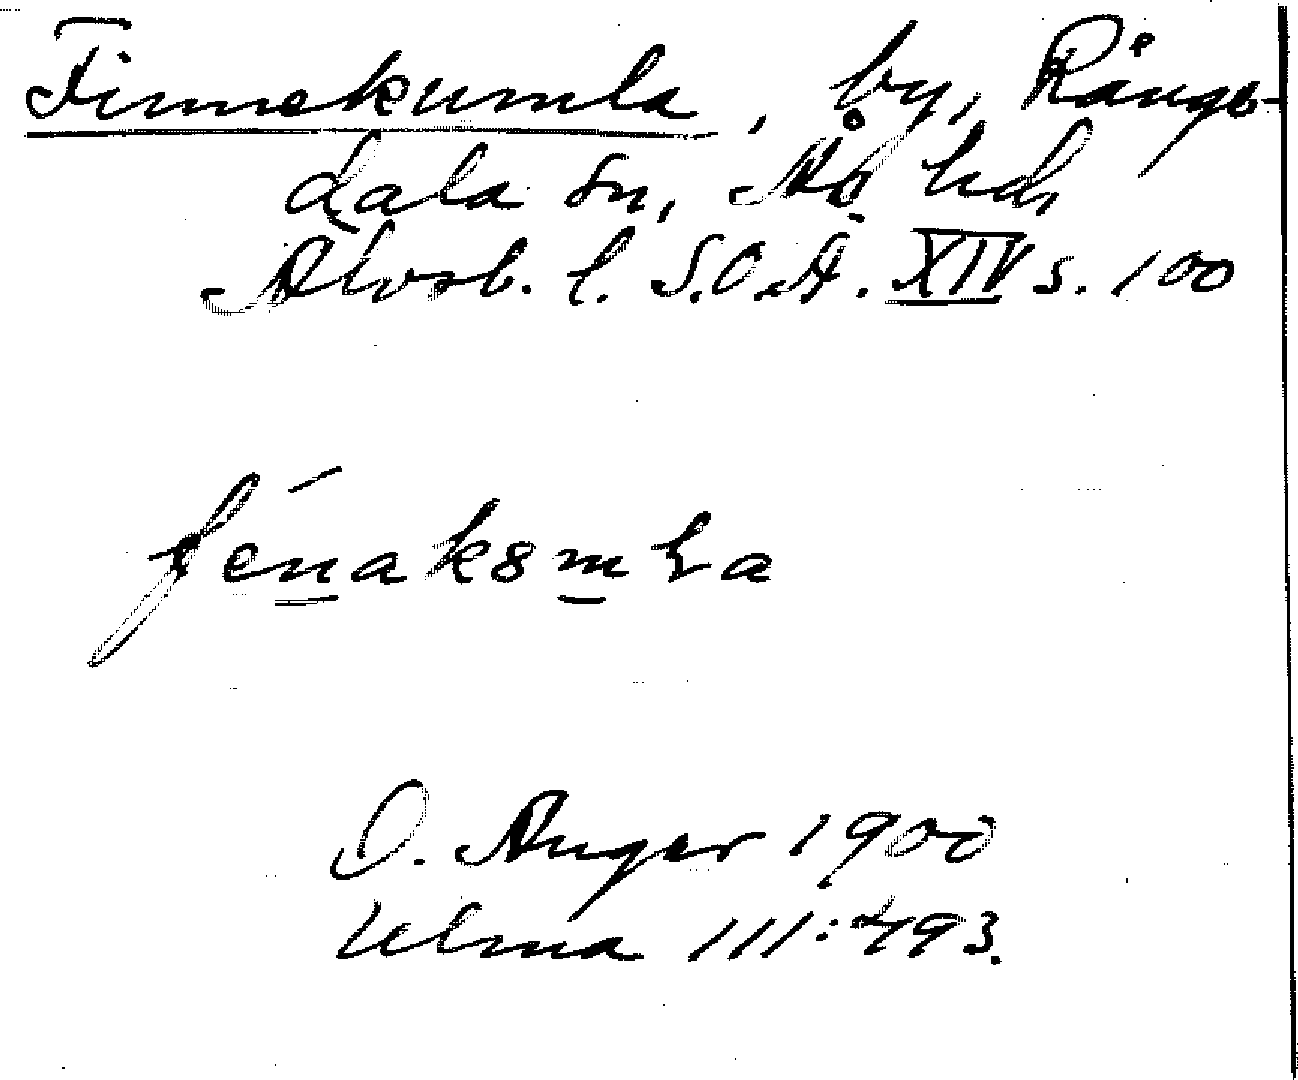 Finnekumla, by, Rångs-
dala sn, Ås hd,
Älvsb. l. S.O.Ä. XIV s. 100
O. Anger 1900
Ulma 111:493.